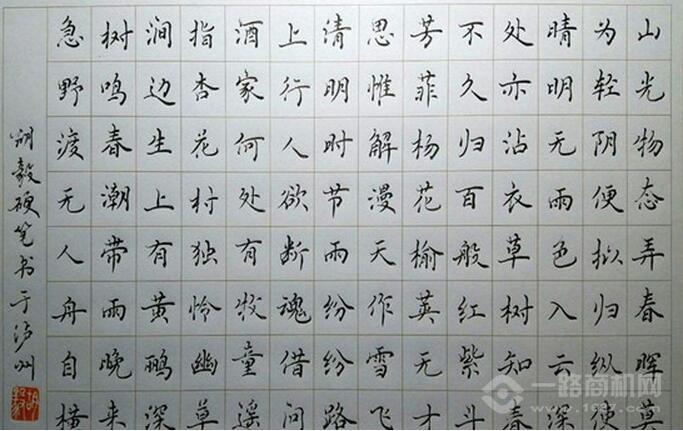 山光物态弄春晖莫
为轻阴便拟归纵使
晴明无雨色入云深
处亦沾衣草树知春
不久归百般红紫斗
芳菲杨花榆荚无才
思惟解漫天作雪飞
清明时节雨纷纷路
上行人欲断魂借问
酒家何处有牧童遥
指杏花村独怜幽草
涧边生上有黄鹂深
树鸣春潮带雨晚来
急野渡无人舟自横
胡毅硬笔书于泸州
胡毅
一路商机网